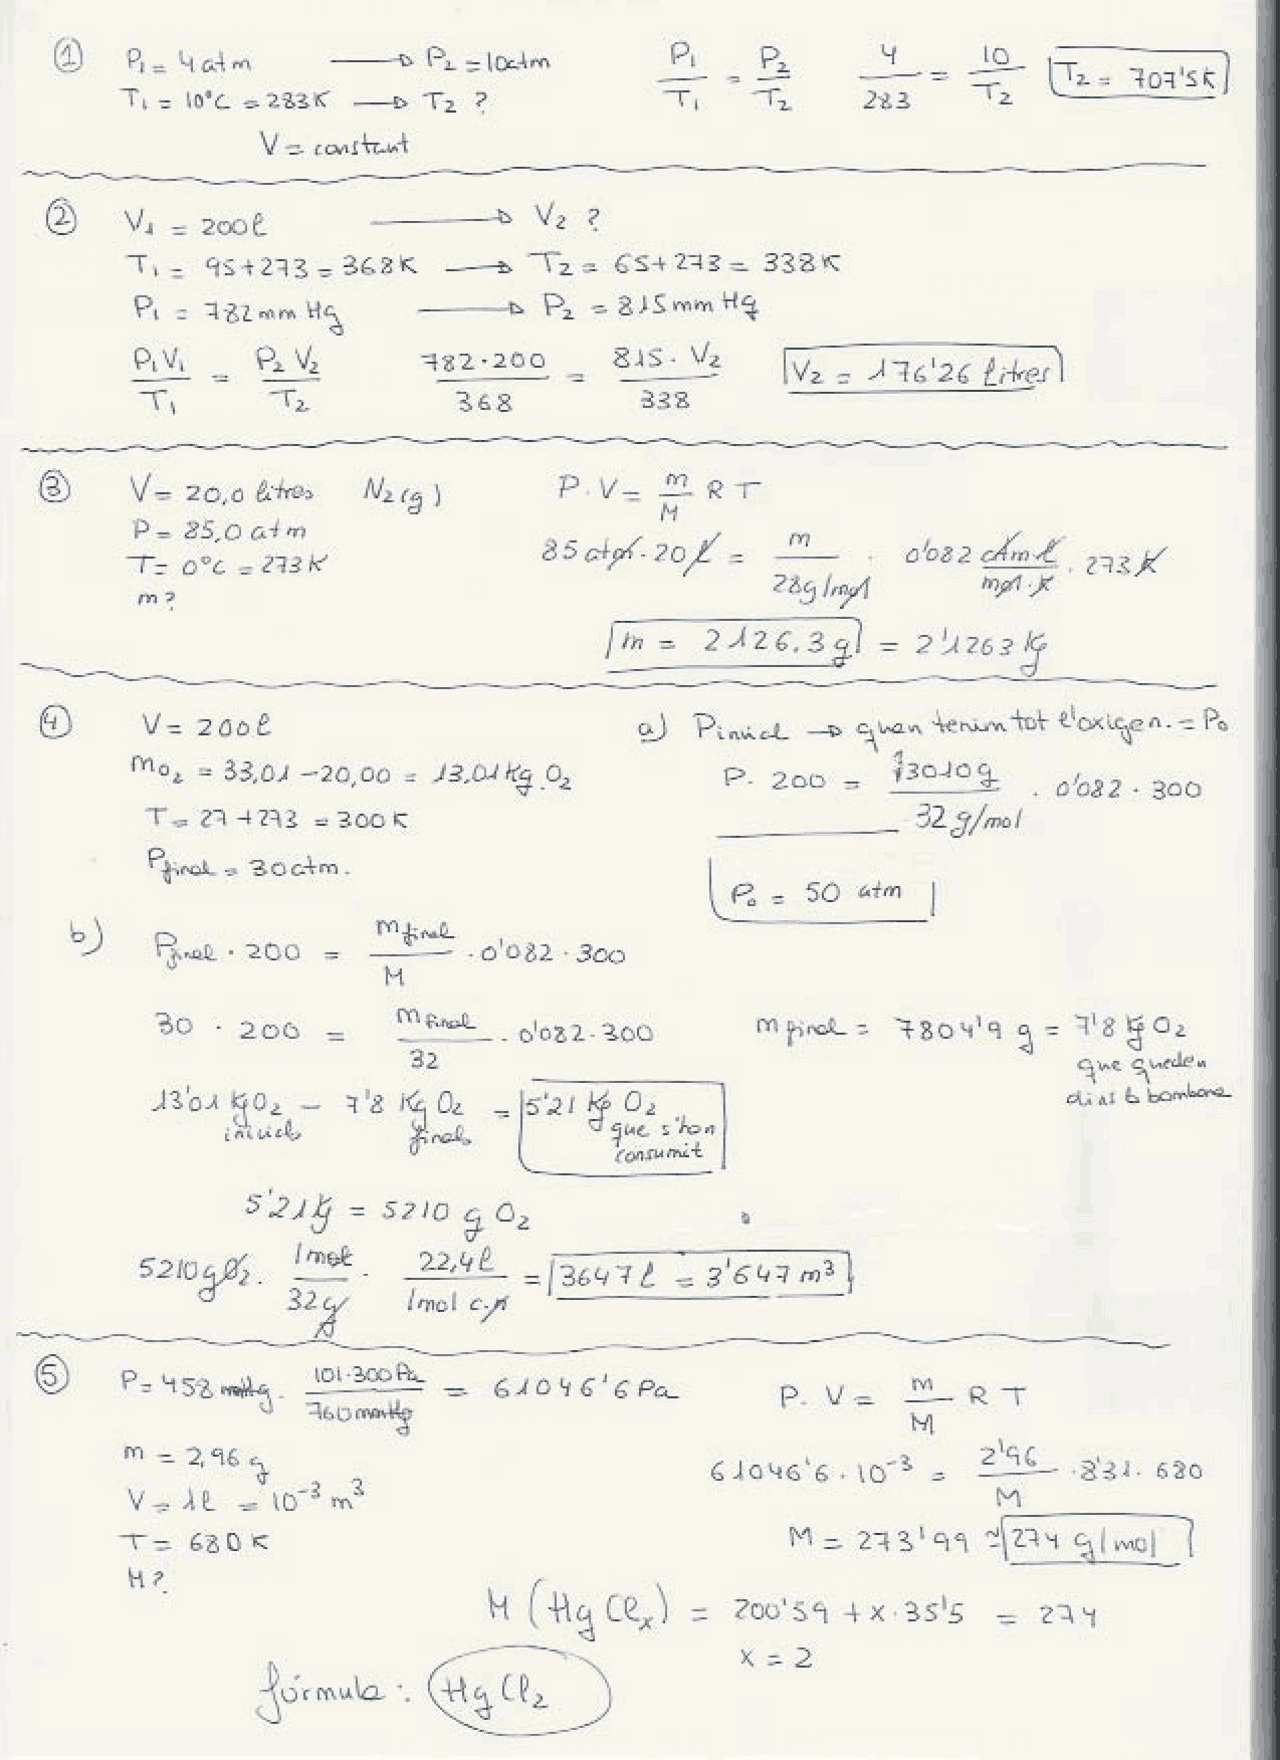 ① P₁ = 4 atm → P₂ = 10 atm P₁/T₁ = P₂/T₂ 4/283 = 10/T₂ T₂ = 707'5 K
T₁ = 10°C = 283 K → T₂ ?
V = constant
② V₁ = 200 l → V₂ ?
T₁ = 95+273 = 368 K → T₂ = 65+273 = 338 K
P₁ = 782 mm Hg → P₂ = 815 mm Hg
P₁V₁/T₁ = P₂V₂/T₂ 782·200/368 = 815·V₂/338 V₂ = 176'26 litres
③ V = 20,0 litros N₂(g) P·V = m/M R T
P = 85,0 atm
T = 0°C = 273 K 85 atm · 20 l = m/28 g/mol · 0'082 atm l/mol·K · 273 K
m?
m = 2126.3 g = 2'1263 Kg
④ V = 200 l a) Pinicial → quan tenim tot l'oxigen. = P₀
mO₂ = 33,01 – 20,00 = 13,01 Kg O₂ P. 200 = 13010 g/32 g/mol · 0'082 · 300
T = 27+273 = 300 K
Pfinal = 30 atm. P₀ = 50 atm
b) Pfinal · 200 = mfinal/M · 0'082 · 300
30 · 200 = mfinal/32 · 0'082 · 300 mfinal = 7804'9 g = 7'8 Kg O₂
que queden
dins la bombona
13'01 Kg O₂ – 7'8 Kg O₂ = 5'21 Kg O₂
inicials finals que s'han
consumit
5'21 Kg = 5210 g O₂
5210 g O₂ · 1 mol/32 g · 22,4 l/1 mol c.n = 3647 l = 3'647 m³
⑤ P = 458 mmHg · 101.300 Pa/760 mmHg = 61046'6 Pa P. V = m/M R T
m = 2,96 g
V = 1 l = 10⁻³ m³ 61046'6 · 10⁻³ = 2'96/M · 8'31 · 680
T = 680 K M = 273'99 ≈ 274 g/mol
M?
M (HgClₓ) = 200'59 + x · 35'5 = 274
x = 2
fórmula : HgCl₂